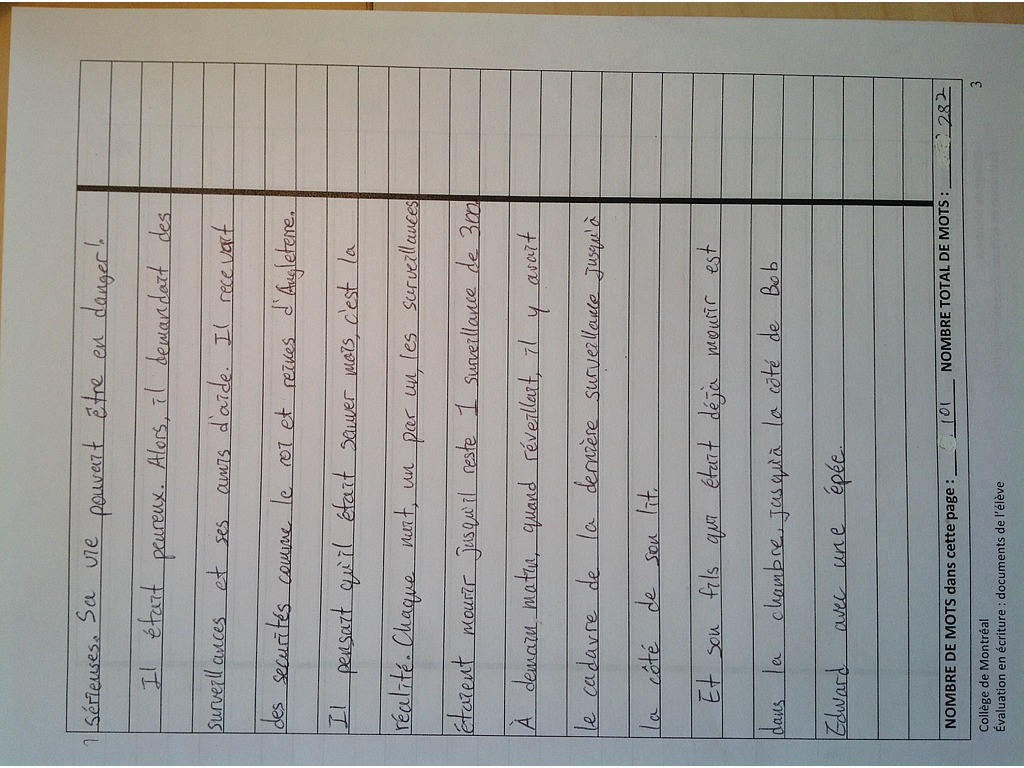 sérieuses. Sa vie pouvait être en danger!
Il était peureux. Alors, il demandait des
surveillances et ses amis d'aide. Il recevait
des securités comme le roi et reines d'Angleterre.
Il pensait qu'il était sauver mais, c'est la
réalité. Chaque nuit, un par un, les surveillances
étaient mourir jusqu'il reste 1 surveillance de 3m
À demain matin, quand réveillait, il y avait
le cadavre de la dernière surveillance jusqu'à
la côté de son lit.
Et son fils qui était déjà mourir est
dans la chambre, jusqu'à la côté de Bob
Edward avec une épée.
NOMBRE DE MOTS dans cette page : 101 NOMBRE TOTAL DE MOTS : 282
Collège de Montréal
Évaluation en écriture : documents de l'élève
3